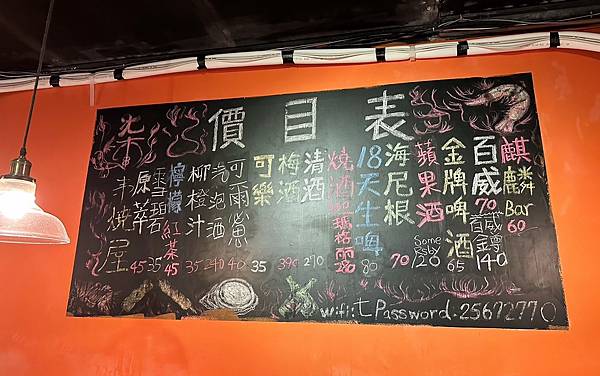 價目表
麒麟 Bar 60
百威 70
140
金牌啤酒 65
蘋果酒 Somersby 120
海尼根 70
18天生啤 80
燒酒 280
清酒 270
梅酒 390
可樂 35
可爾 40
汽泡酒 240
柳橙汁 35
檸檬紅茶 45
雪碧 35
原萃 45
柒 丰燒屋
wifi:t Password.25672770